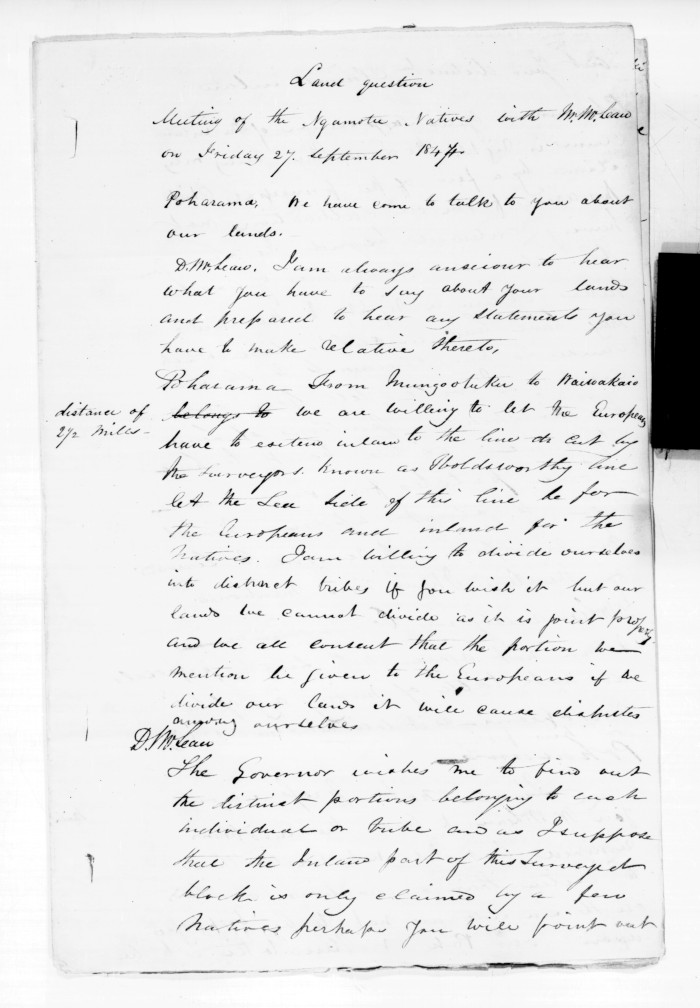 Land question
Meeting of the Ngamotu Natives with Mr. McLean
on Friday 27 September 1844
Poharama, We have come to talk to you about
our lands.
D. McLean, I am always anxiour to hear
what you have to say about your lands
and prepared to hear any statements you
have to make relative thereto,
Poharama From Mungootuku to Waiwakaio
distance of
2 1/2 Miles
belongs to we are willing to let the Europeans
have to extend inland to the line as cut by
the surveyors known as Holdsworthy line
let the Sea side of this line be for
the Europeans and inland for the
Natives. I am willing to divide ourselves
into distinct tribes if you wish it but our
lands we cannot divide as it is joint property
and we all consent that the portion we
mention be given to the Europeans if we
divide our lands it will cause disputes
among ourselves
D. McLean
The Governor wishes me to find out
the distinct portions belonging to each
individual or tribe and as I suppose
that the Inland part of this Surveyed
block is only claimed by a few
Natives perhaps you will point out